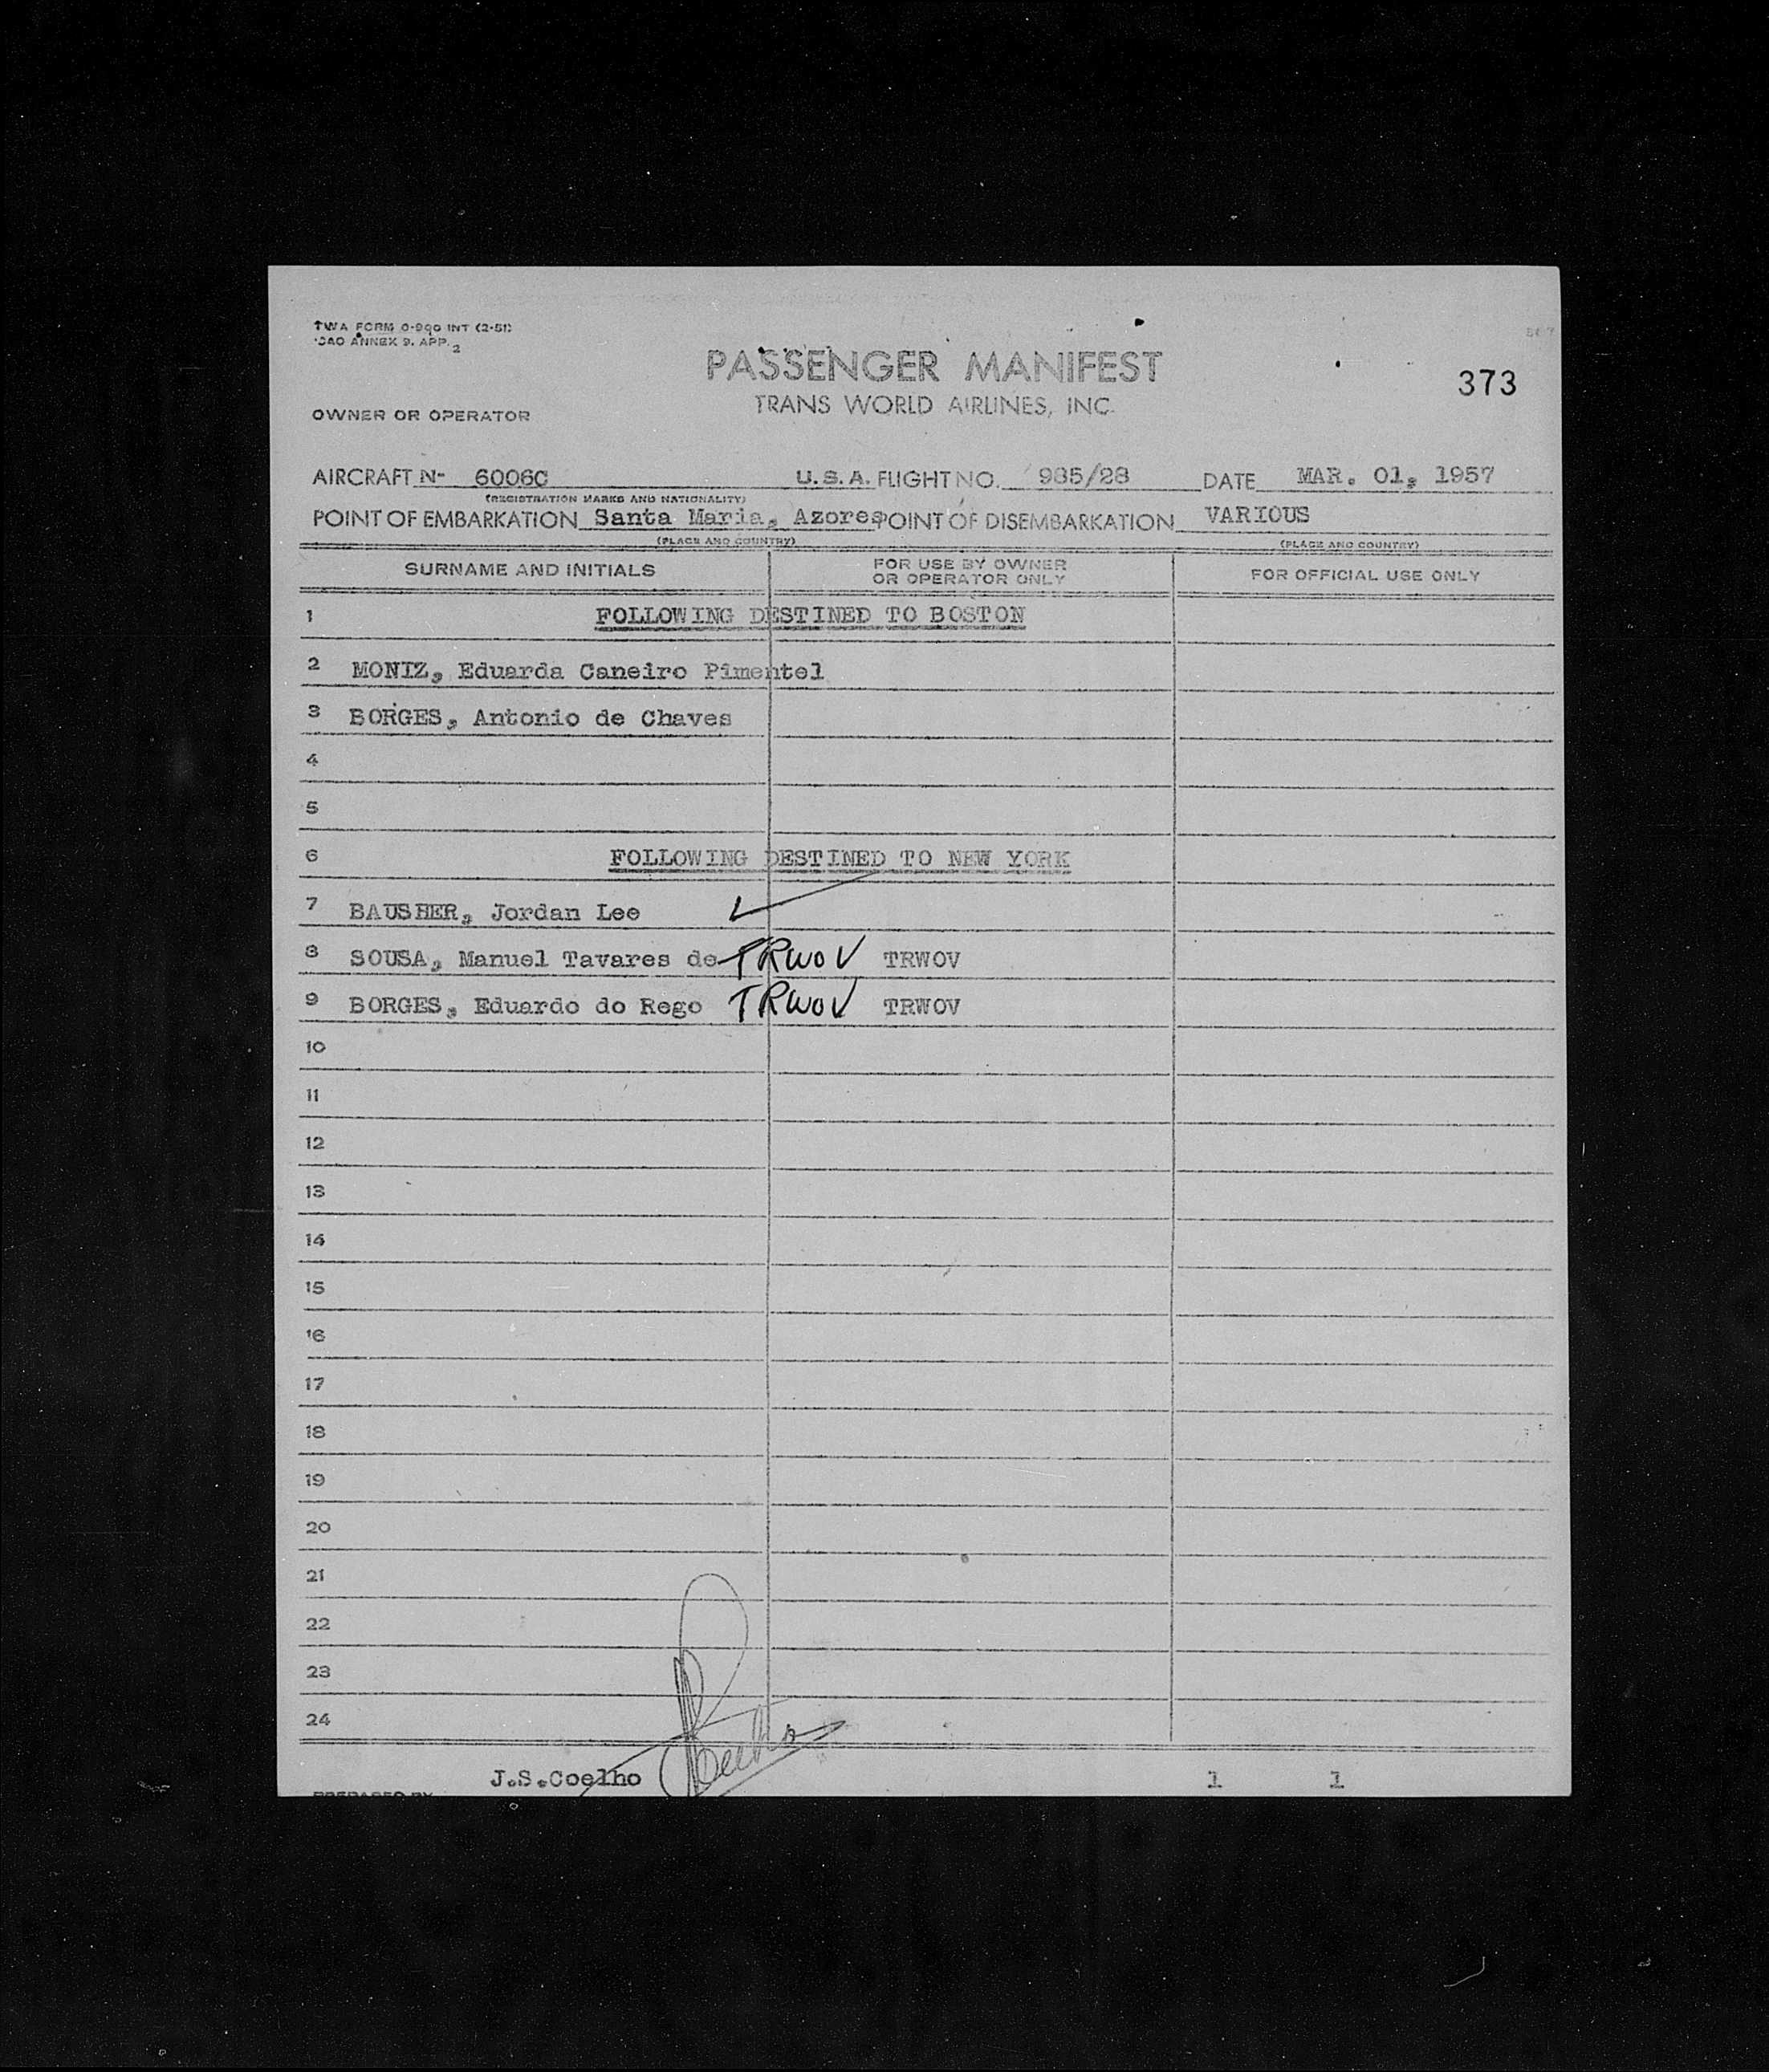 TWA FORM 0-990 INT (2-51)
ICAO ANNEX 9. APP. 2
PASSENGER MANIFEST
373
TRANS WORLD AIRLINES, INC.
OWNER OR OPERATOR
AIRCRAFT N- 6006C U.S.A. FLIGHT NO. 985/28 DATE MAR. 01, 1957
(REGISTRATION MARKS AND NATIONALITY)
POINT OF EMBARKATION Santa Maria, Azores POINT OF DISEMBARKATION VARIOUS
(PLACE AND COUNTRY) (PLACE AND COUNTRY)
SURNAME AND INITIALS FOR USE BY OWNER OR OPERATOR ONLY FOR OFFICIAL USE ONLY
1 FOLLOWING DESTINED TO BOSTON
2 MONIZ, Eduarda Caneiro Pimentel
3 BORGES, Antonio de Chaves
4
5
6 FOLLOWING DESTINED TO NEW YORK
7 BAUSHER, Jordan Lee
8 SOUSA, Manuel Tavares de TRWOV TRWOV
9 BORGES, Eduardo do Rego TRWOV TRWOV
10
11
12
13
14
15
16
17
18
19
20
21
22
23
24
J.S.Coelho Coelho 1 1
PREPARED BY